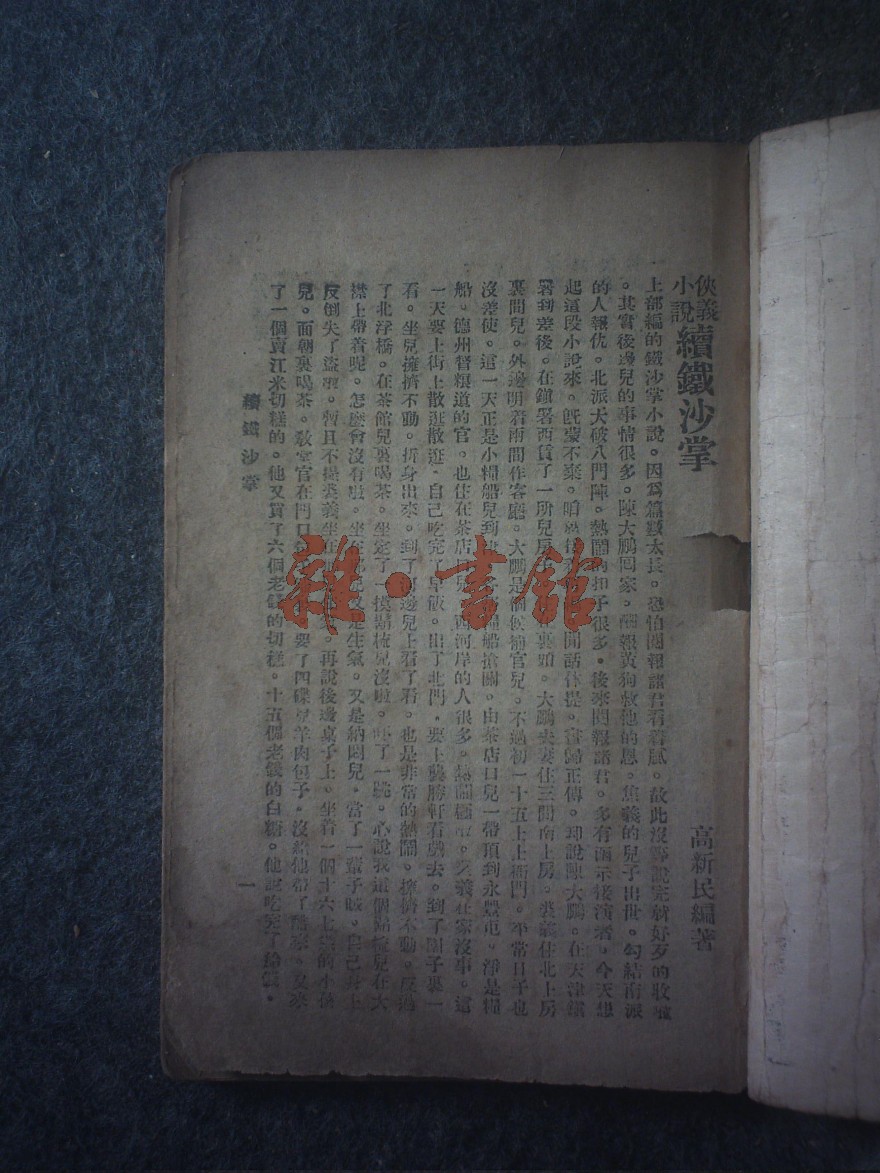 俠義小說 續鐵沙掌
高新民編著
上部編的鐵沙掌小說。因爲篇數太長。恐怕閱報諸君看着膩。故此沒等說完就好歹的收塲
。其實後邊兒的事情很多。陳大鵬回家。酬報黃狗救他的恩。焦義的兒子出世。勾結南派
的人報仇。北派大破八門陣。熱鬧的扣子很多。後來閱報諸君。多有函示後演者。今天想
起這段小說來。旣蒙不棄。閒話休提。書歸正傳。却說陳大鵬。在天津鎮
署到差後。在鎮署西賃了一所兒房子。大鵬夫妻住三間南上房。裘義住北上房
裏間兒。外邊明着兩間作客廳。大鵬是個候補官兒。不過初一十五上上衙門。平常日子也
沒差使。這一天正是小糧船兒到 糧船搶關。由茶店口兒一帶頂到永豐屯。淨是糧
船。德州督糧道的官。也住在茶店口兒。西河岸的人很多。熱鬧極啦。裘義在家沒事。這
一天要上街上散逛散逛。自己吃完了早飯。出了北門。要上襲勝軒看戲去。到了園子裏一
看。坐兒擁擠不動。折身出來。到了河邊兒上看了看。也是非常的熱鬧。擁擠不動。反過
了北浮橋。在茶館兒裏喝茶。坐定了一摸鬍梳兒沒啦。吓了一跳。心說我這個鬍梳兒在大
襟上帶着呢。怎麽會沒有啦。坐在那兒又是生氣。又是納悶兒。當了一輩子賊。自己身上
反倒失了盜啦。暫且不提裘義坐在 再說後邊桌子上。坐着一個十六七歲的小孩
兒。面朝裏喝茶。教堂官在門口 要了四碟兒羊肉包子。沒給他帶了醋來。又來
了一個賣江米切糕的。他又買了六個老錢的切糕。十五個老錢的白糖。他說吃完了給錢。
續鐵沙掌
一
雜·書館